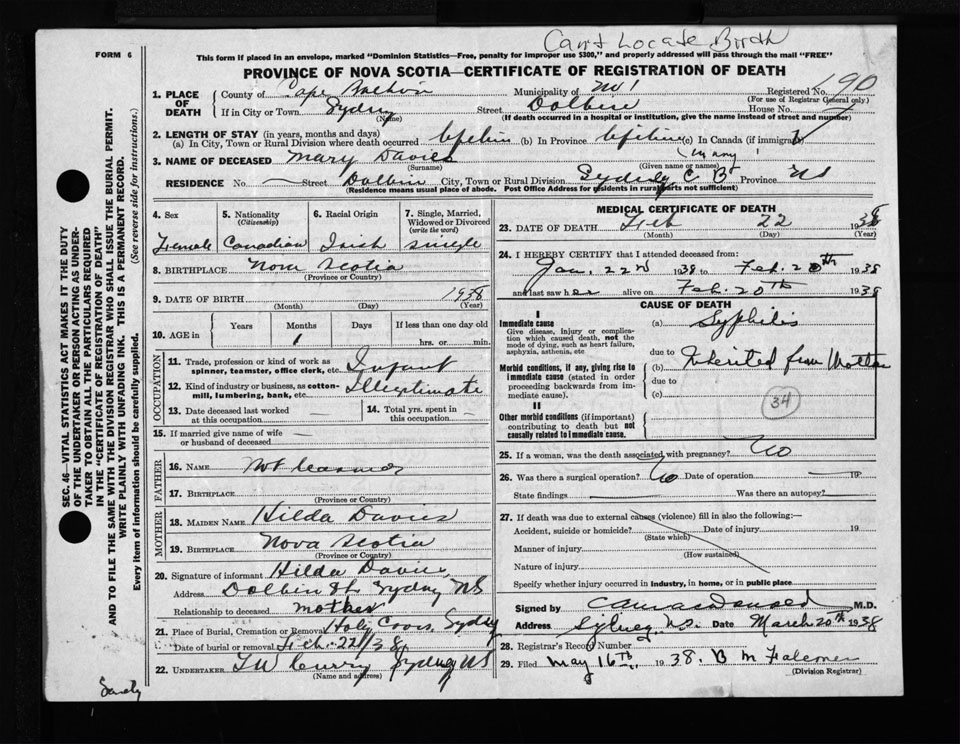 Cant Locate Birth
FORM 6
This form if placed in an envelope, marked "Dominion Statistics—Free, penalty for improper use $300," and properly addressed will pass through the mail "FREE"
PROVINCE OF NOVA SCOTIA—CERTIFICATE OF REGISTRATION OF DEATH
SEC. 46—VITAL STATISTICS ACT MAKES IT THE DUTY
OF THE UNDERTAKER OR PERSON ACTING AS UNDER-
TAKER TO OBTAIN ALL THE PARTICULARS REQUIRED
IN THE "CERTIFICATE OF REGISTRATION OF DEATH"
AND TO FILE THE SAME WITH THE DIVISION REGISTRAR WHO SHALL ISSUE THE BURIAL PERMIT.
WRITE PLAINLY WITH UNFADING INK. THIS IS A PERMANENT RECORD.
Every item of information should be carefully supplied. (See reverse side for instructions.)
1. PLACE OF DEATH
County of Cape Breton Municipality of Registered No. 90
(For use of Registrar General only)
If in City or Town Sydney Street Dolbin House No.
(Name) (If death occurred in a hospital or institution, give the name instead of street and number)
2. LENGTH OF STAY (in years, months and days)
(a) In City, Town or Rural Division where death occurred Lifetime (b) In Province Lifetime (c) In Canada (if immigrant)
3. NAME OF DECEASED Mary Davies (Mary)
(Surname) (Given name or names)
RESIDENCE No. — Street Dolbin City, Town or Rural Division Sydney C B Province NS
(Residence means usual place of abode. Post Office Address for residents in rural parts not sufficient)
4. Sex Female
5. Nationality (Citizenship) Canadian
6. Racial Origin Irish
7. Single, Married, Widowed or Divorced (write the word) single
8. BIRTHPLACE Nova Scotia
(Province or Country)
9. DATE OF BIRTH 1938
(Month) (Day) (Year)
10. AGE in Years Months Days If less than one day old
1 hrs. or min.
OCCUPATION
11. Trade, profession or kind of work as spinner, teamster, office clerk, etc. Infant
12. Kind of industry or business, as cotton-mill, lumbering, bank, etc. Illegitimate
13. Date deceased last worked at this occupation —
14. Total yrs. spent in this occupation —
15. If married give name of wife or husband of deceased —
FATHER
16. NAME Not learned
17. BIRTHPLACE
(Province or Country)
MOTHER
18. MAIDEN NAME Hilda Davies
19. BIRTHPLACE Nova Scotia
(Province or Country)
20. Signature of informant Hilda Davies
Address Dolbin St Sydney NS
Relationship to deceased mother
21. Place of Burial, Cremation or Removal Holy Cross, Sydney
Date of burial or removal Feb. 22/38
22. UNDERTAKER TW Curry Sydney NS
(Name and address)
MEDICAL CERTIFICATE OF DEATH
23. DATE OF DEATH Feb 22 1938
(Month) (Day) (Year)
24. I HEREBY CERTIFY that I attended deceased from:
Jan. 22nd 1938 to Feb. 20th 1938
and last saw her alive on Feb. 20th 1938
CAUSE OF DEATH
I
Immediate cause
Give disease, injury or complication which caused death, not the mode of dying, such as heart failure, asphyxia, asthenia, etc
(a) Syphilis
due to
Morbid conditions, if any, giving rise to immediate cause (stated in order proceeding backwards from immediate cause).
(b) Inherited from Mother
due to
(c)
34
II
Other morbid conditions (if important) contributing to death but not causally related to immediate cause.
25. If a woman, was the death associated with pregnancy? No
26. Was there a surgical operation? No Date of operation 19
State findings Was there an autopsy?
27. If death was due to external causes (violence) fill in also the following:—
Accident, suicide or homicide? Date of injury 19
(State which)
Manner of injury
(How sustained)
Nature of injury
Specify whether injury occurred in industry, in home, or in public place
Signed by M.D.
Address Sydney, N.S. Date March 20th 1938
28. Registrar's Record Number
29. Filed May 16th, 1938. B M Falconer
(Division Registrar)